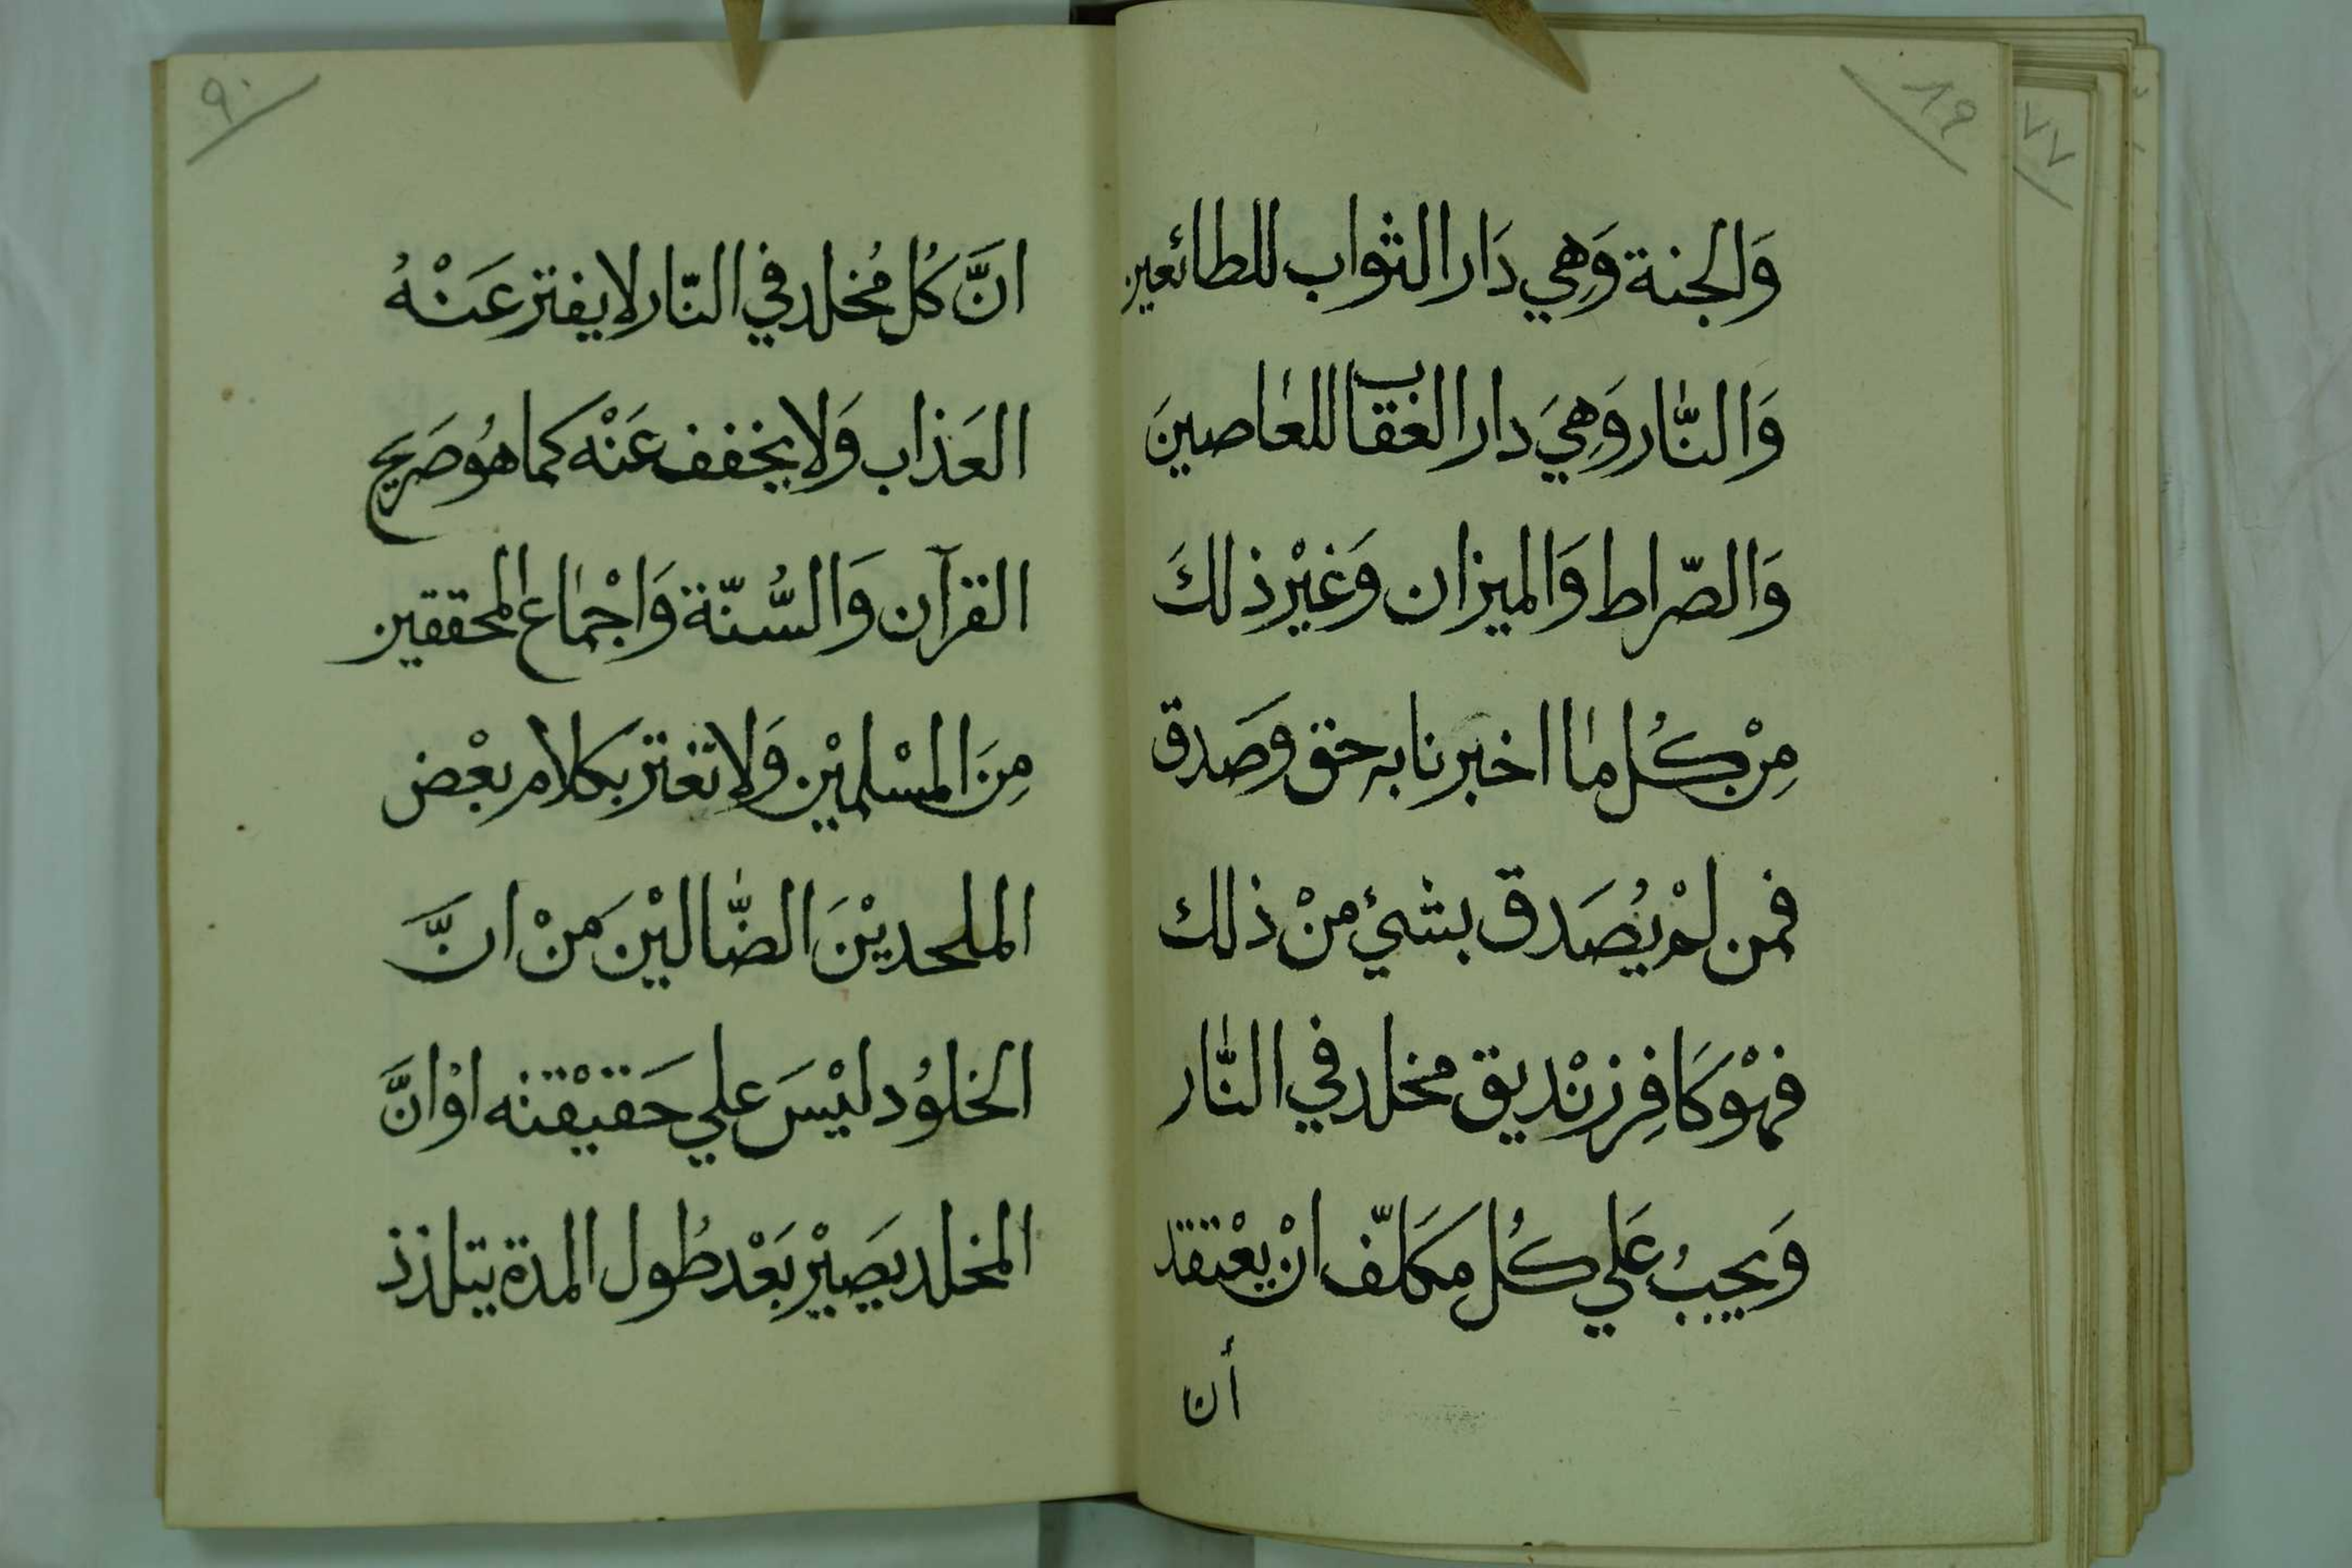 ٨٩
وَالجنة وَهِي دَار الثواب للطائعين
وَالنَّار وَهِيَ دار العقاب للعاصينَ
وَالصّراط وَالميزان وَغيْر ذلكَ
مِنْ كُل ما اخبَرنا به حق وصَدق
فمن لمْ يُصَدق بشئ منْ ذلك
فهْو كَافِر زنْديق مخلد في النَّار
وَيجبُ عَلي كُل مكَلّف انْ يعْتقد
أن
٩٠
انَّ كُل مُخلد في النّار لا يفتر عَنْهُ
العَذاب وَلا يخفف عَنْه كما هُو صَريح
القرآن وَالسُّنّة وَاجْماع المحققين
مِنَ المسْلميْن وَلا تغتر بكلام بعْض
الملحديْنَ الضَّاليْن مَنْ انَّ
الخلوُد ليْسَ علي حَقيْقته اوْ انَّ
المخلد يصَيْر بَعْد طُول المدة يتلذذ
٧٧